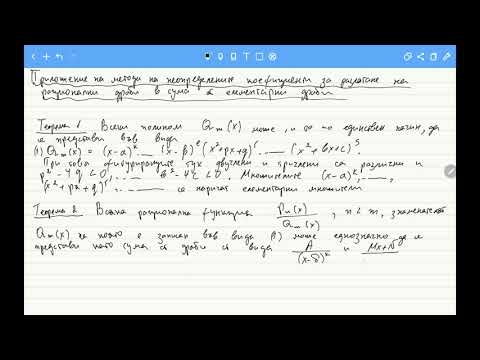 Приложение на метода на неопределените коефициенти за разлагане на
рационални дроби в сума от елементарни дроби
Теорема 1 Всеки полином Qm(x) може, и то по единствен начин, да
се представи във вида
(1) Qm(x) = (x-α)^k ..... (x-β)^l (x²+px+q)^r ..... (x²+bx+c)^s.
При това фигуриращите тук двучлени и тричлени са различни и
p²-4q<0, ......, b²-4c<0. Множителите (x-α)^k, .....,
(x²+px+q)^r, ...... се наричат елементарни множители.
Теорема 2. Всяка рационална функция Pn(x)/Qm(x), n<m, знаменателят
Qm(x) на която е записан във вида (1) може еднозначно да се
представи като сума от дроби от вида A/(x-δ)^k и Mx+N